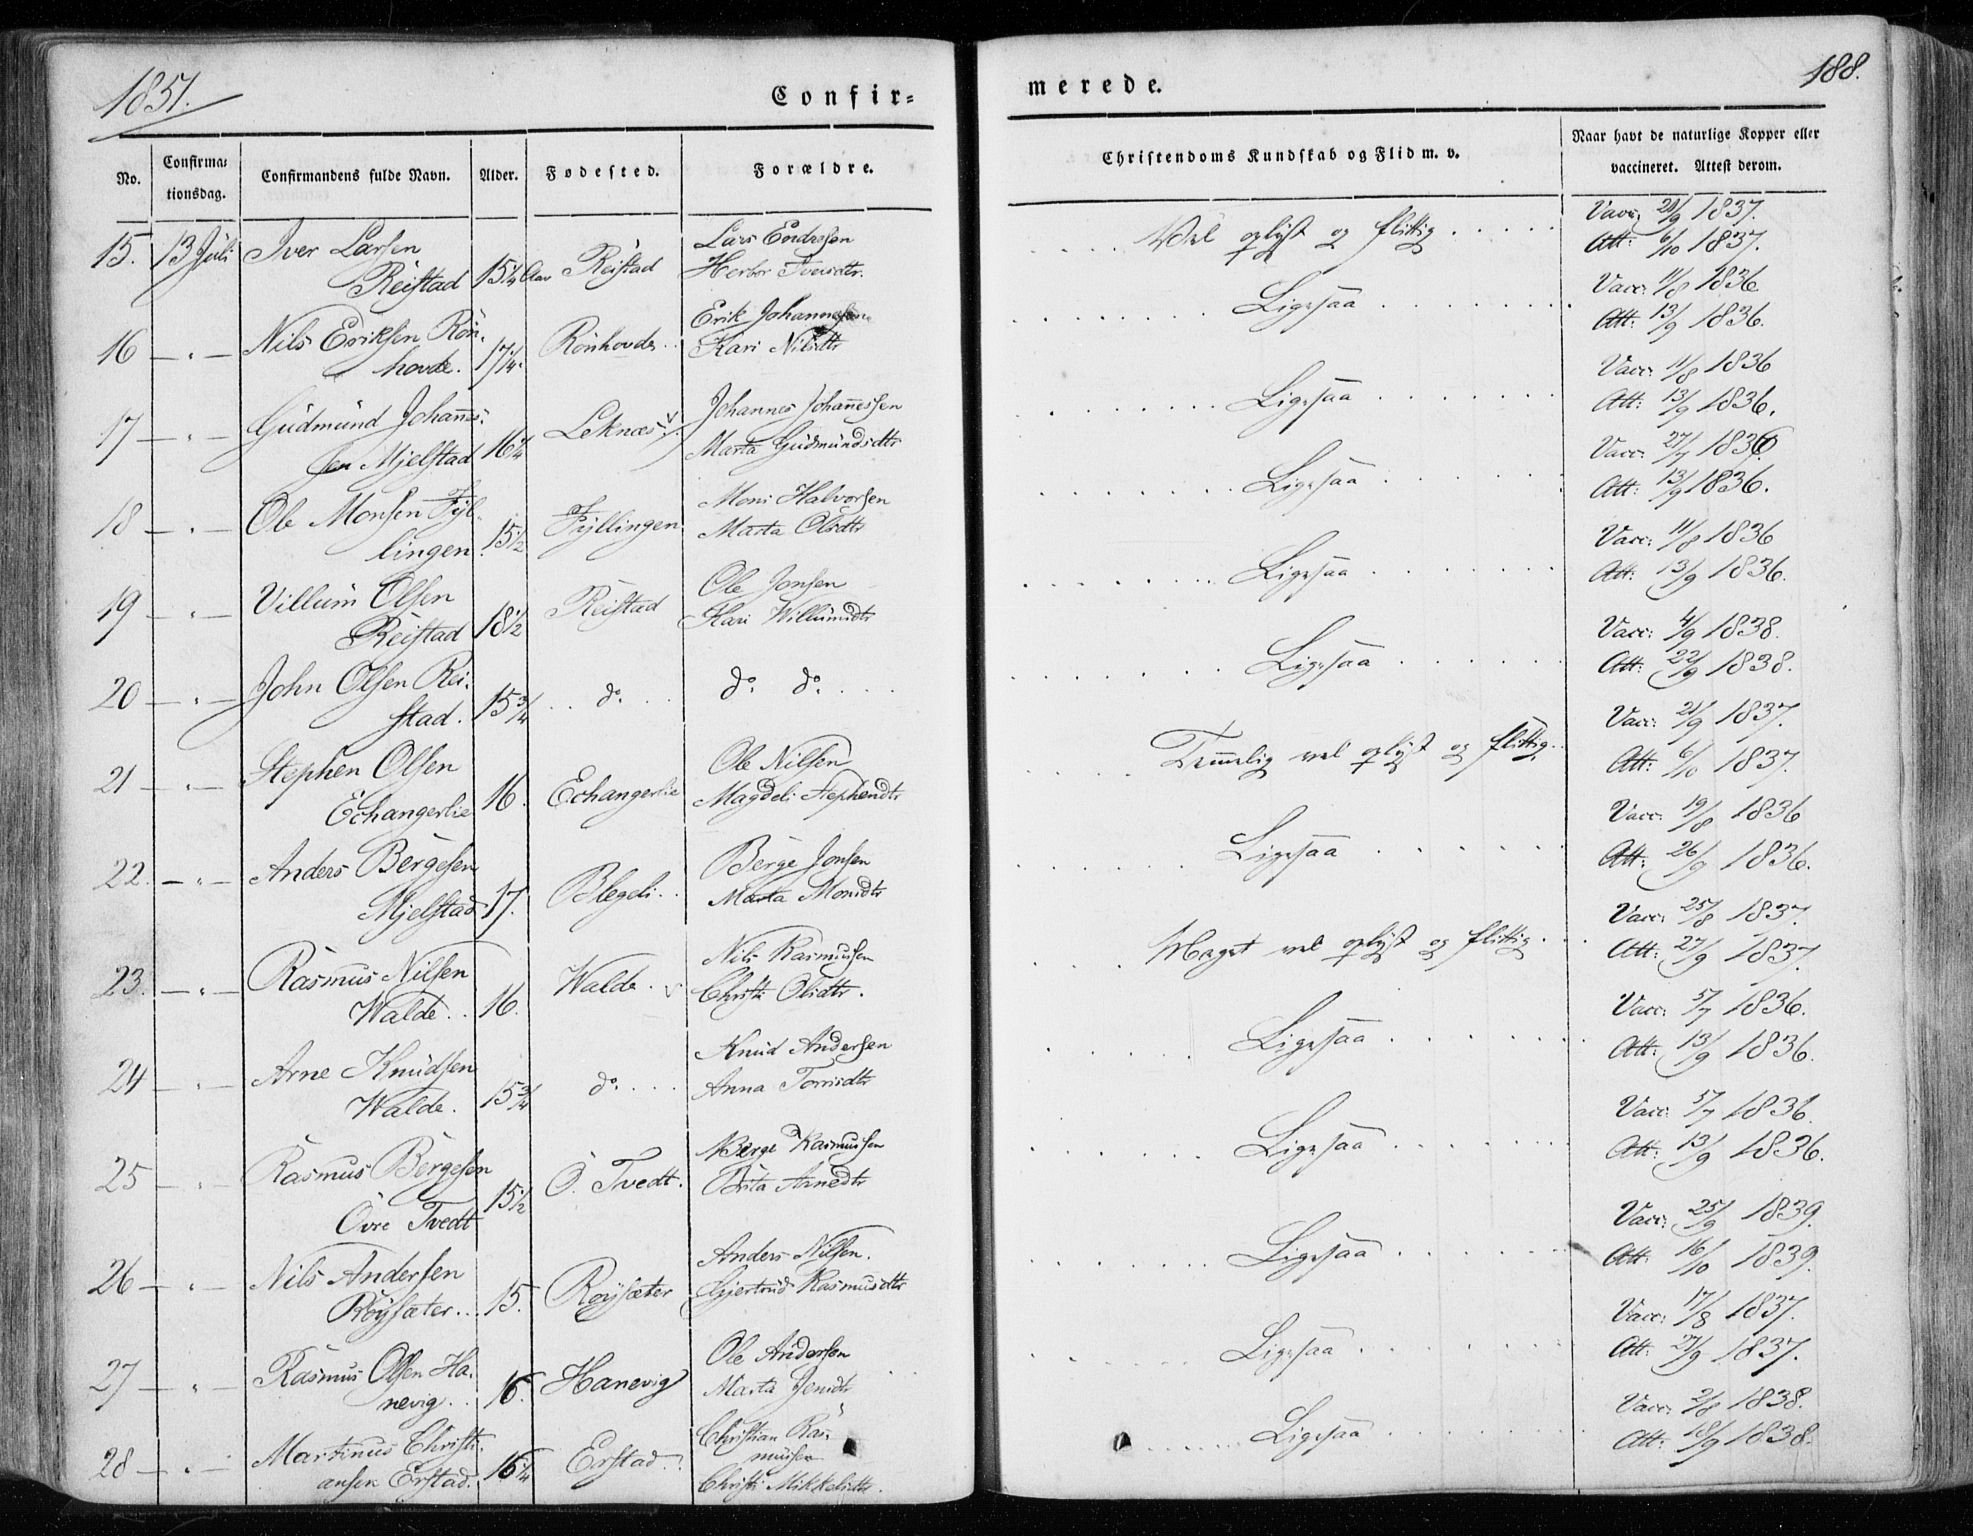 1851.
Confir=
merede.
188.
No.
Confirma=
tionsdag.
Confirmandens fulde Navn.
Alder.
Fødested.
Forældre.
Christendoms Kundskab og Flid m. v.
Naar havt de naturlige Kopper eller
vaccineret. Attest derom.
15. 13 Juli Iver Larsen
Reistad 15 1/4 Aar Reistad
Lars Endresen
Herbor Iversdtr.
Vel oplyst og flittig
Vacc. 21/9 1837.
Att: 6/10 1837.
16 — " — Nils Eriksen Rön-
hovde. 17 1/4. Rönhovde.
Erik Johannesen
Kari Nilsdtr
Ligesaa
Vacc: 11/8 1836
Att: 13/9 1836.
17 — " — Gudmund Johannes-
sen Mjelstad 16 1/4 Leknæs
Johannes Johannessen
Marta Gudmundsdtr
Ligesaa
Vacc: 11/8 1836
Att: 13/9 1836.
18 — " — Ole Monsen Fyl-
lingen 15 1/2 Fyllingen
Mons Halvorsen
Marta Olsdtr
Ligesaa
Vacc: 27/7 1836
Att: 13/9 1836.
19 — " — Villum Olsen
Reistad 18 1/2 Reistad
Ole Jonsen
Kari Willumsdtr
Ligesaa
Vacc: 11/8 1836
Att: 13/9 1836.
20 — " — John Olsen Rei-
stad. 15 3/4 do. do. do.
Ligesaa
Vacc: 4/9 1838.
Att: 22/9 1838.
21 — " — Stephen Olsen
Echangerlie 16. Echangerlie
Ole Nilsen
Magdeli Stephensdtr
Temmelig vel oplyst og flittig.
Vacc: 21/9 1837.
Att: 6/10 1837.
22. — " — Anders Bergesen
Mjelstad 17. Blegeli.
Berge Jonsen
Marta Monsdtr
Ligesaa
Vacc: 19/8 1836
Att: 26/9 1836.
23. — " — Rasmus Nilsen
Walde. 16. Walde.
Nils Rasmussen
Christi Olsdtr.
Meget vel oplyst og flittig.
Vacc: 25/8 1837.
Att: 27/9 1837.
24 — " — Arne Knudsen
Walde. 15 3/4 do.
Knud Andersen
Anna Torrisdtr
Ligesaa
Vacc: 5/7 1836.
Att: 13/9 1836.
25 — " — Rasmus Bergesen
Övre Tvedt 15 1/2 Ö. Tvedt.
Berge Rasmussen
Brita Arnedtr
Ligesaa
Vacc: 5/7 1836.
Att: 13/9 1836.
26 — " — Nils Andersen
Röysæter. 15. Röysæter
Anders Nilsen.
Gjertrud Rasmusdtr
Ligesaa
Vacc: 25/9 1839.
Att: 16/10 1839.
27 — " — Rasmus Olsen Ha-
nevig. 16. Hanevig
Ole Andersen
Marta Jensdtr
Ligesaa
Vacc: 17/8 1837.
Att: 27/9 1837.
28 — " — Martinus Christi-
ansen Erstad. 16 1/4 Erstad.
Christian Ras-
mussen
Christi Mikkelsdtr.
Ligesaa
Vacc: 2/8 1838.
Att: 18/9 1838.